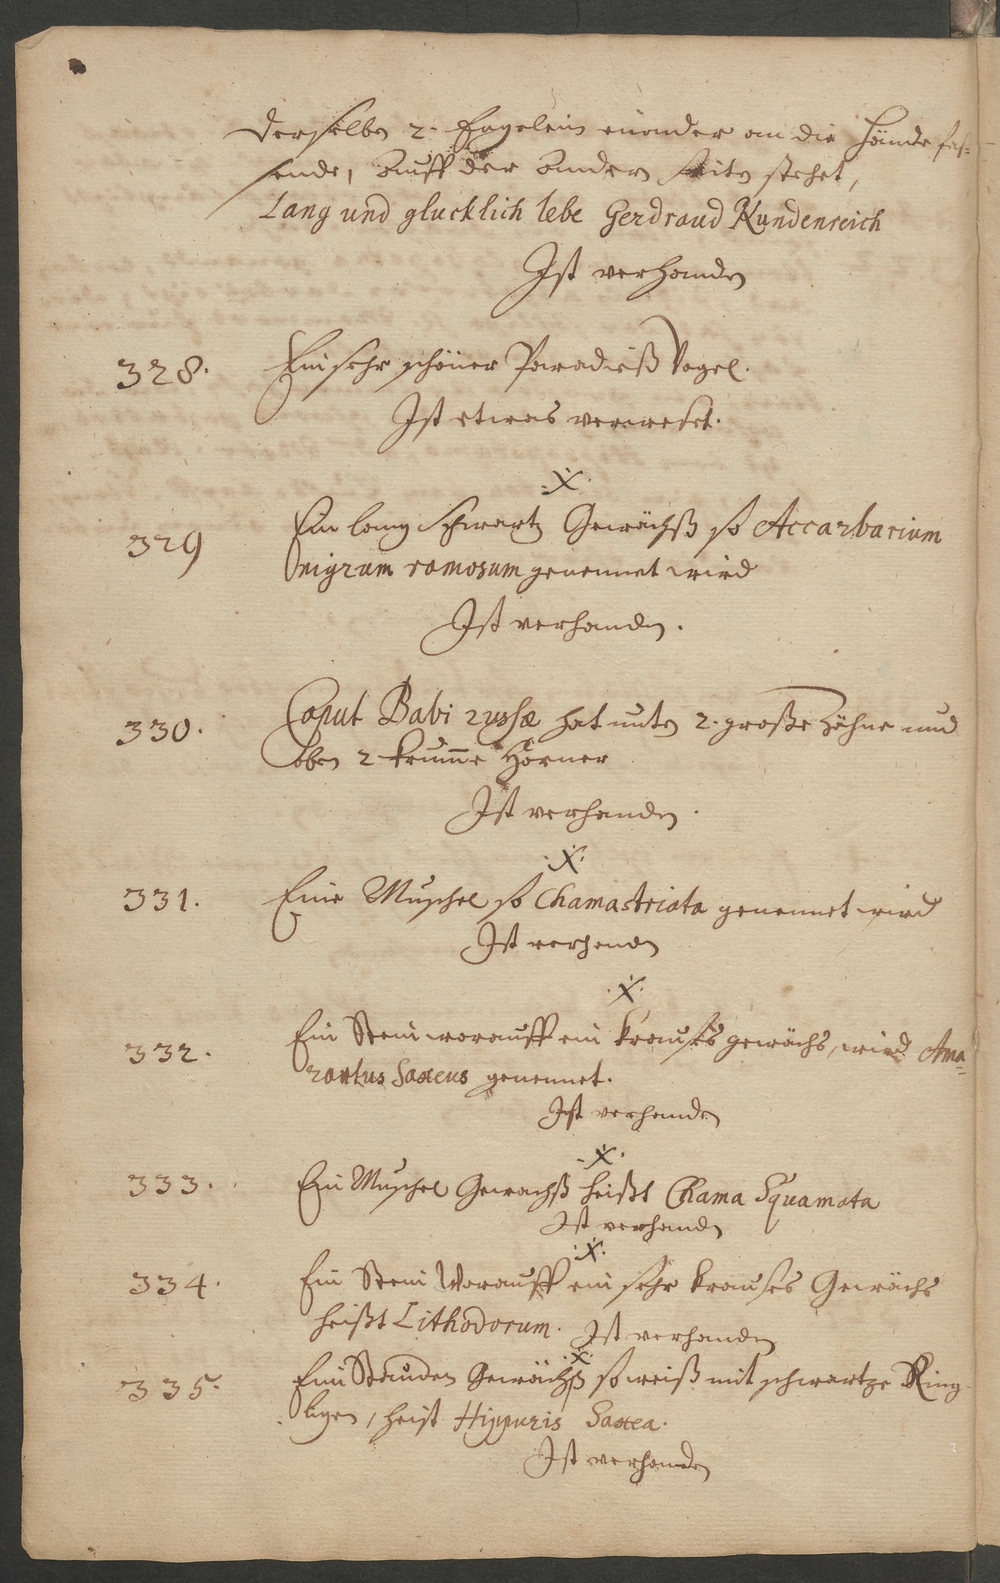 derselben 2. Engelein einander an die Hände fas-
sende, Auff der Andern Seiten stehet,
Lang und glucklich lebe Gerdraud Kundenreich
Ist verhanden
328. Ein sehr schöner Paradieß Vogel.
Ist etwas verweset.
.X.
329 Ein lang Schwartz Gewächß so Accarbarium
nigrum ramosum genennet wird
Ist verhanden.
330. Caput Babi russæ hat unten 2. große Zähne und
oben 2 krum̅e Hörner
Ist verhanden.
.X.
331. Eine Muschel so Chamastriata genennet wird
Ist verhanden
.X.
332. Ein Stein worauff ein krauses gewächs, wird Ama=
rantus Saxeus genennet.
Ist verhanden
.X.
333. Ein Muschel Gewachß heißt Chama Squamata
Ist verhanden
.X.
334. Ein Stein Worauff ein sehr krauses Gewächs
heißt Lithodorum. Ist verhanden
.X.
335. Ein Stauden Gewächß so weiß mit schwartze Ring
ligen, heist Hippuris Saxea.
Ist verhanden